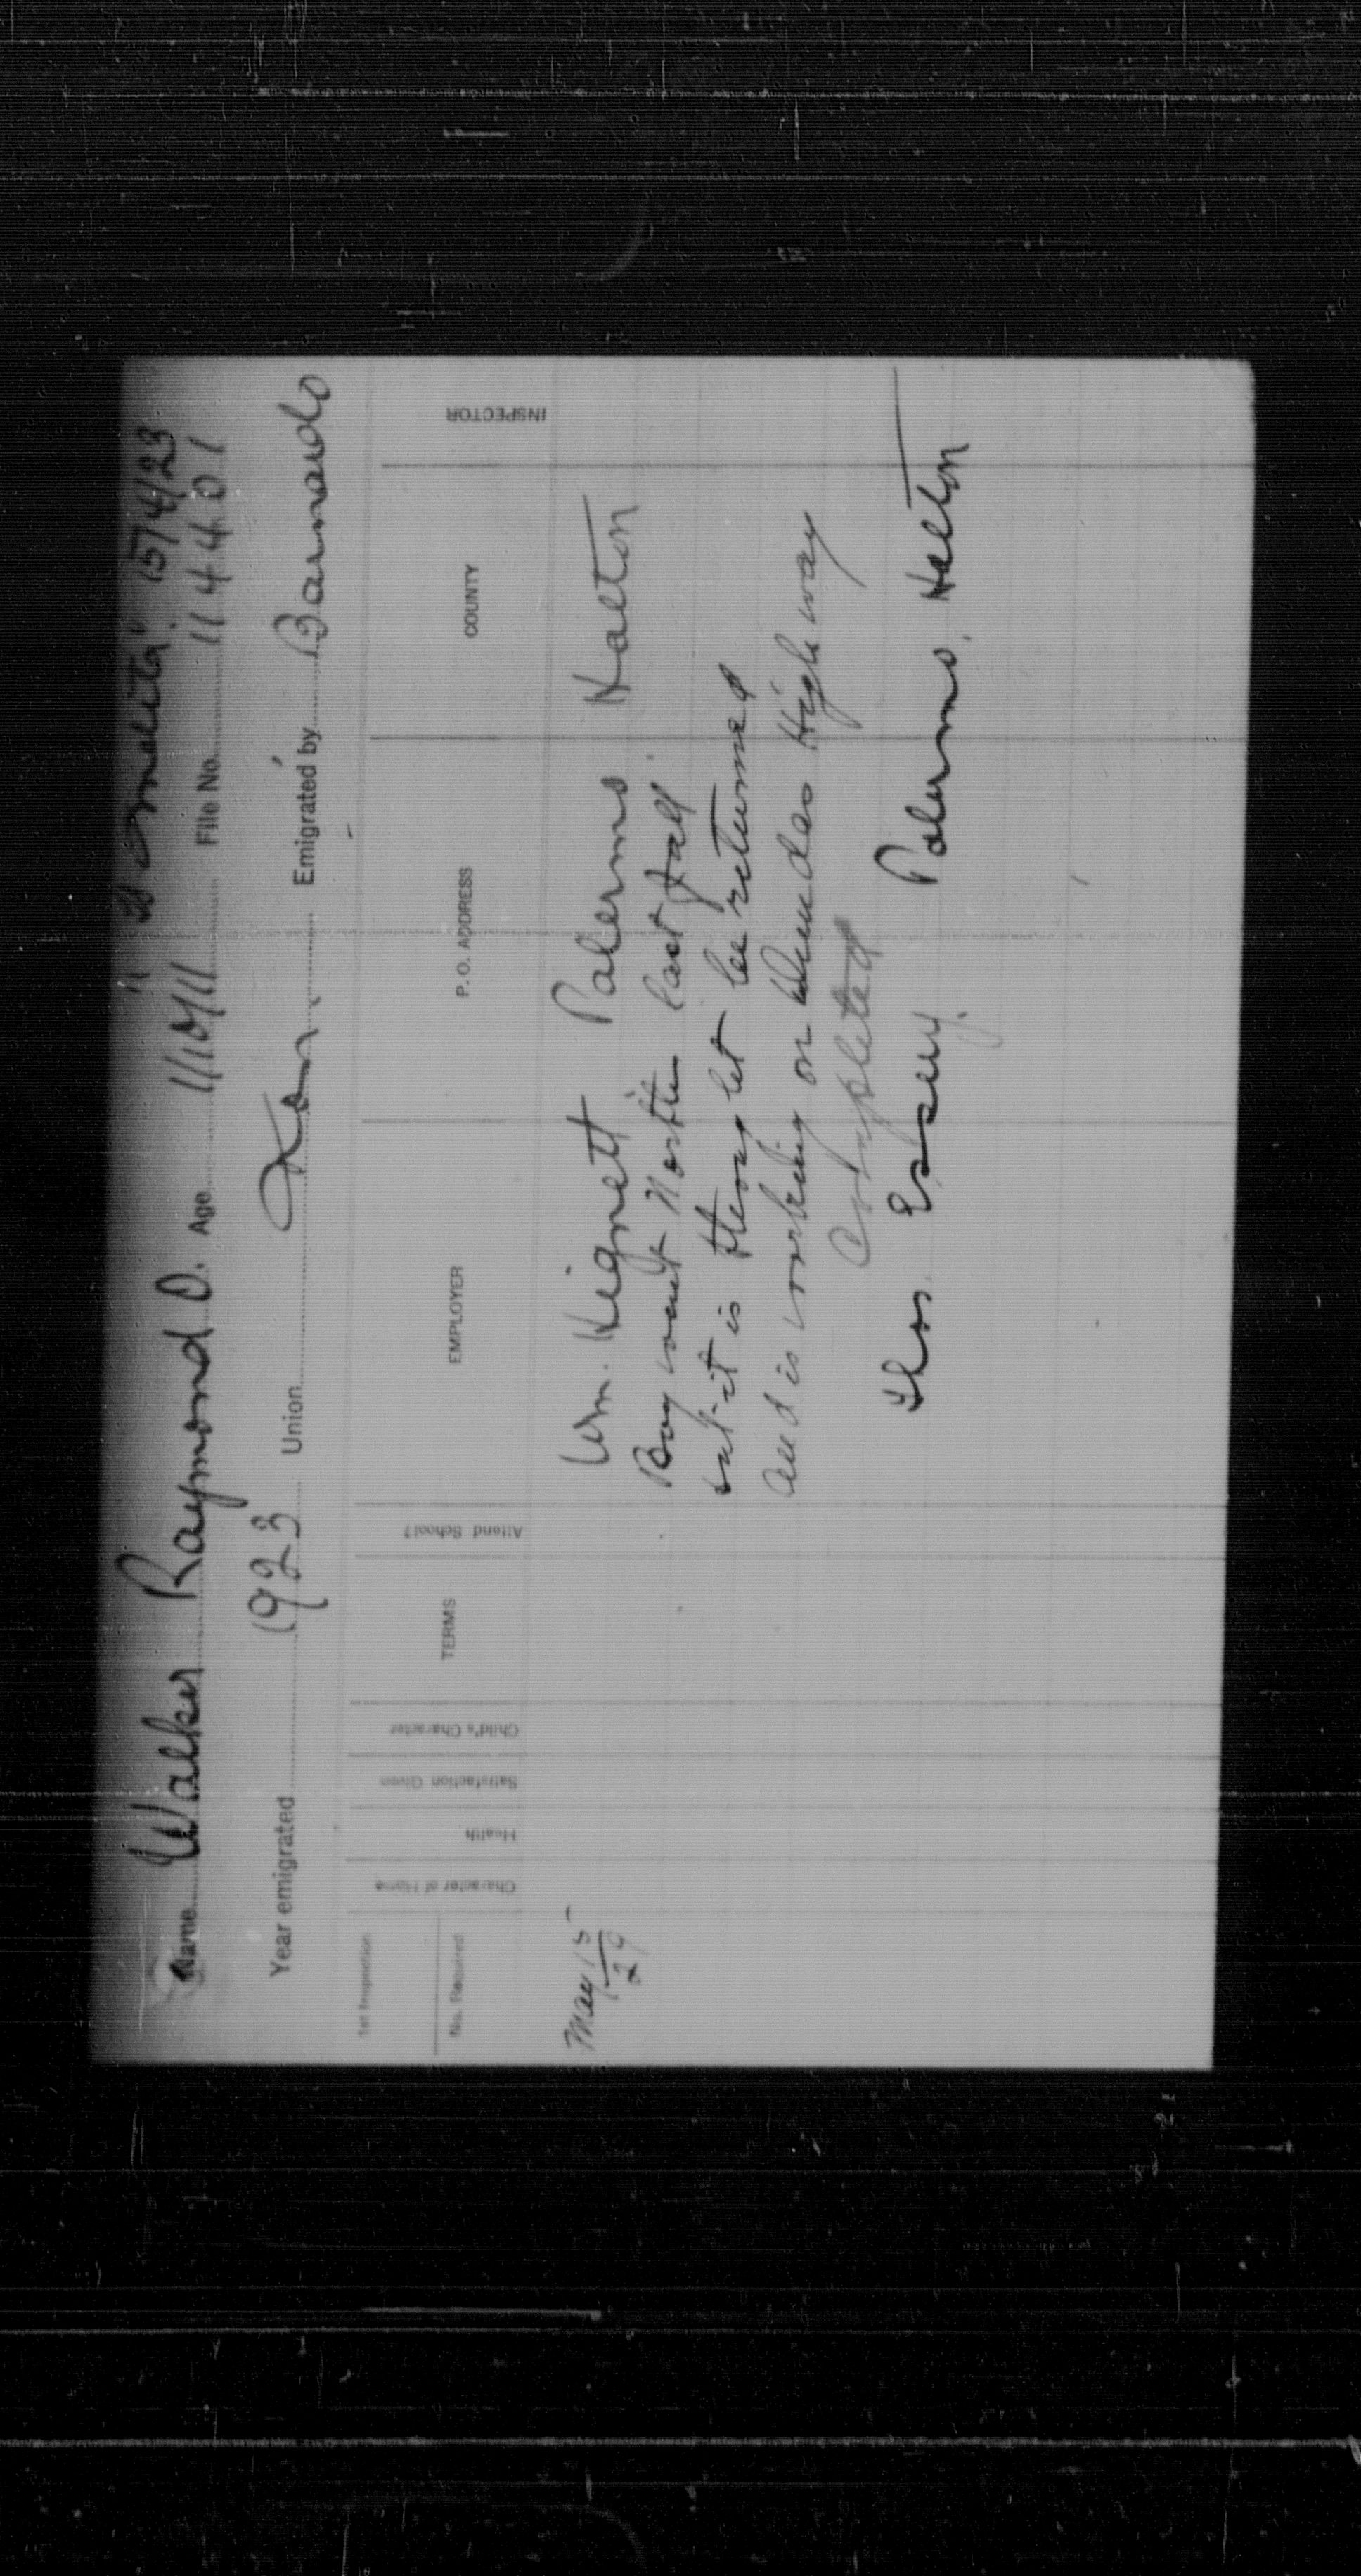 "Melita" 15/4/23
Name Walker Raymond D. Age 11/10/11 File No. 114401
Year emigrated 1923 Union Emigrated by Barnardo
1st Inspection
No. Required
Character of Home
Health
Satisfaction Given
Child's Character
TERMS
Attend School?
EMPLOYER
P.O. ADDRESS
COUNTY
INSPECTOR
May 15 Wm. Hignett Palermo Halton
29 Boy went North last fall
but it is thought he returned
and is working on Dundas Highway
Completed
Thos. Essery. Palermo. Halton